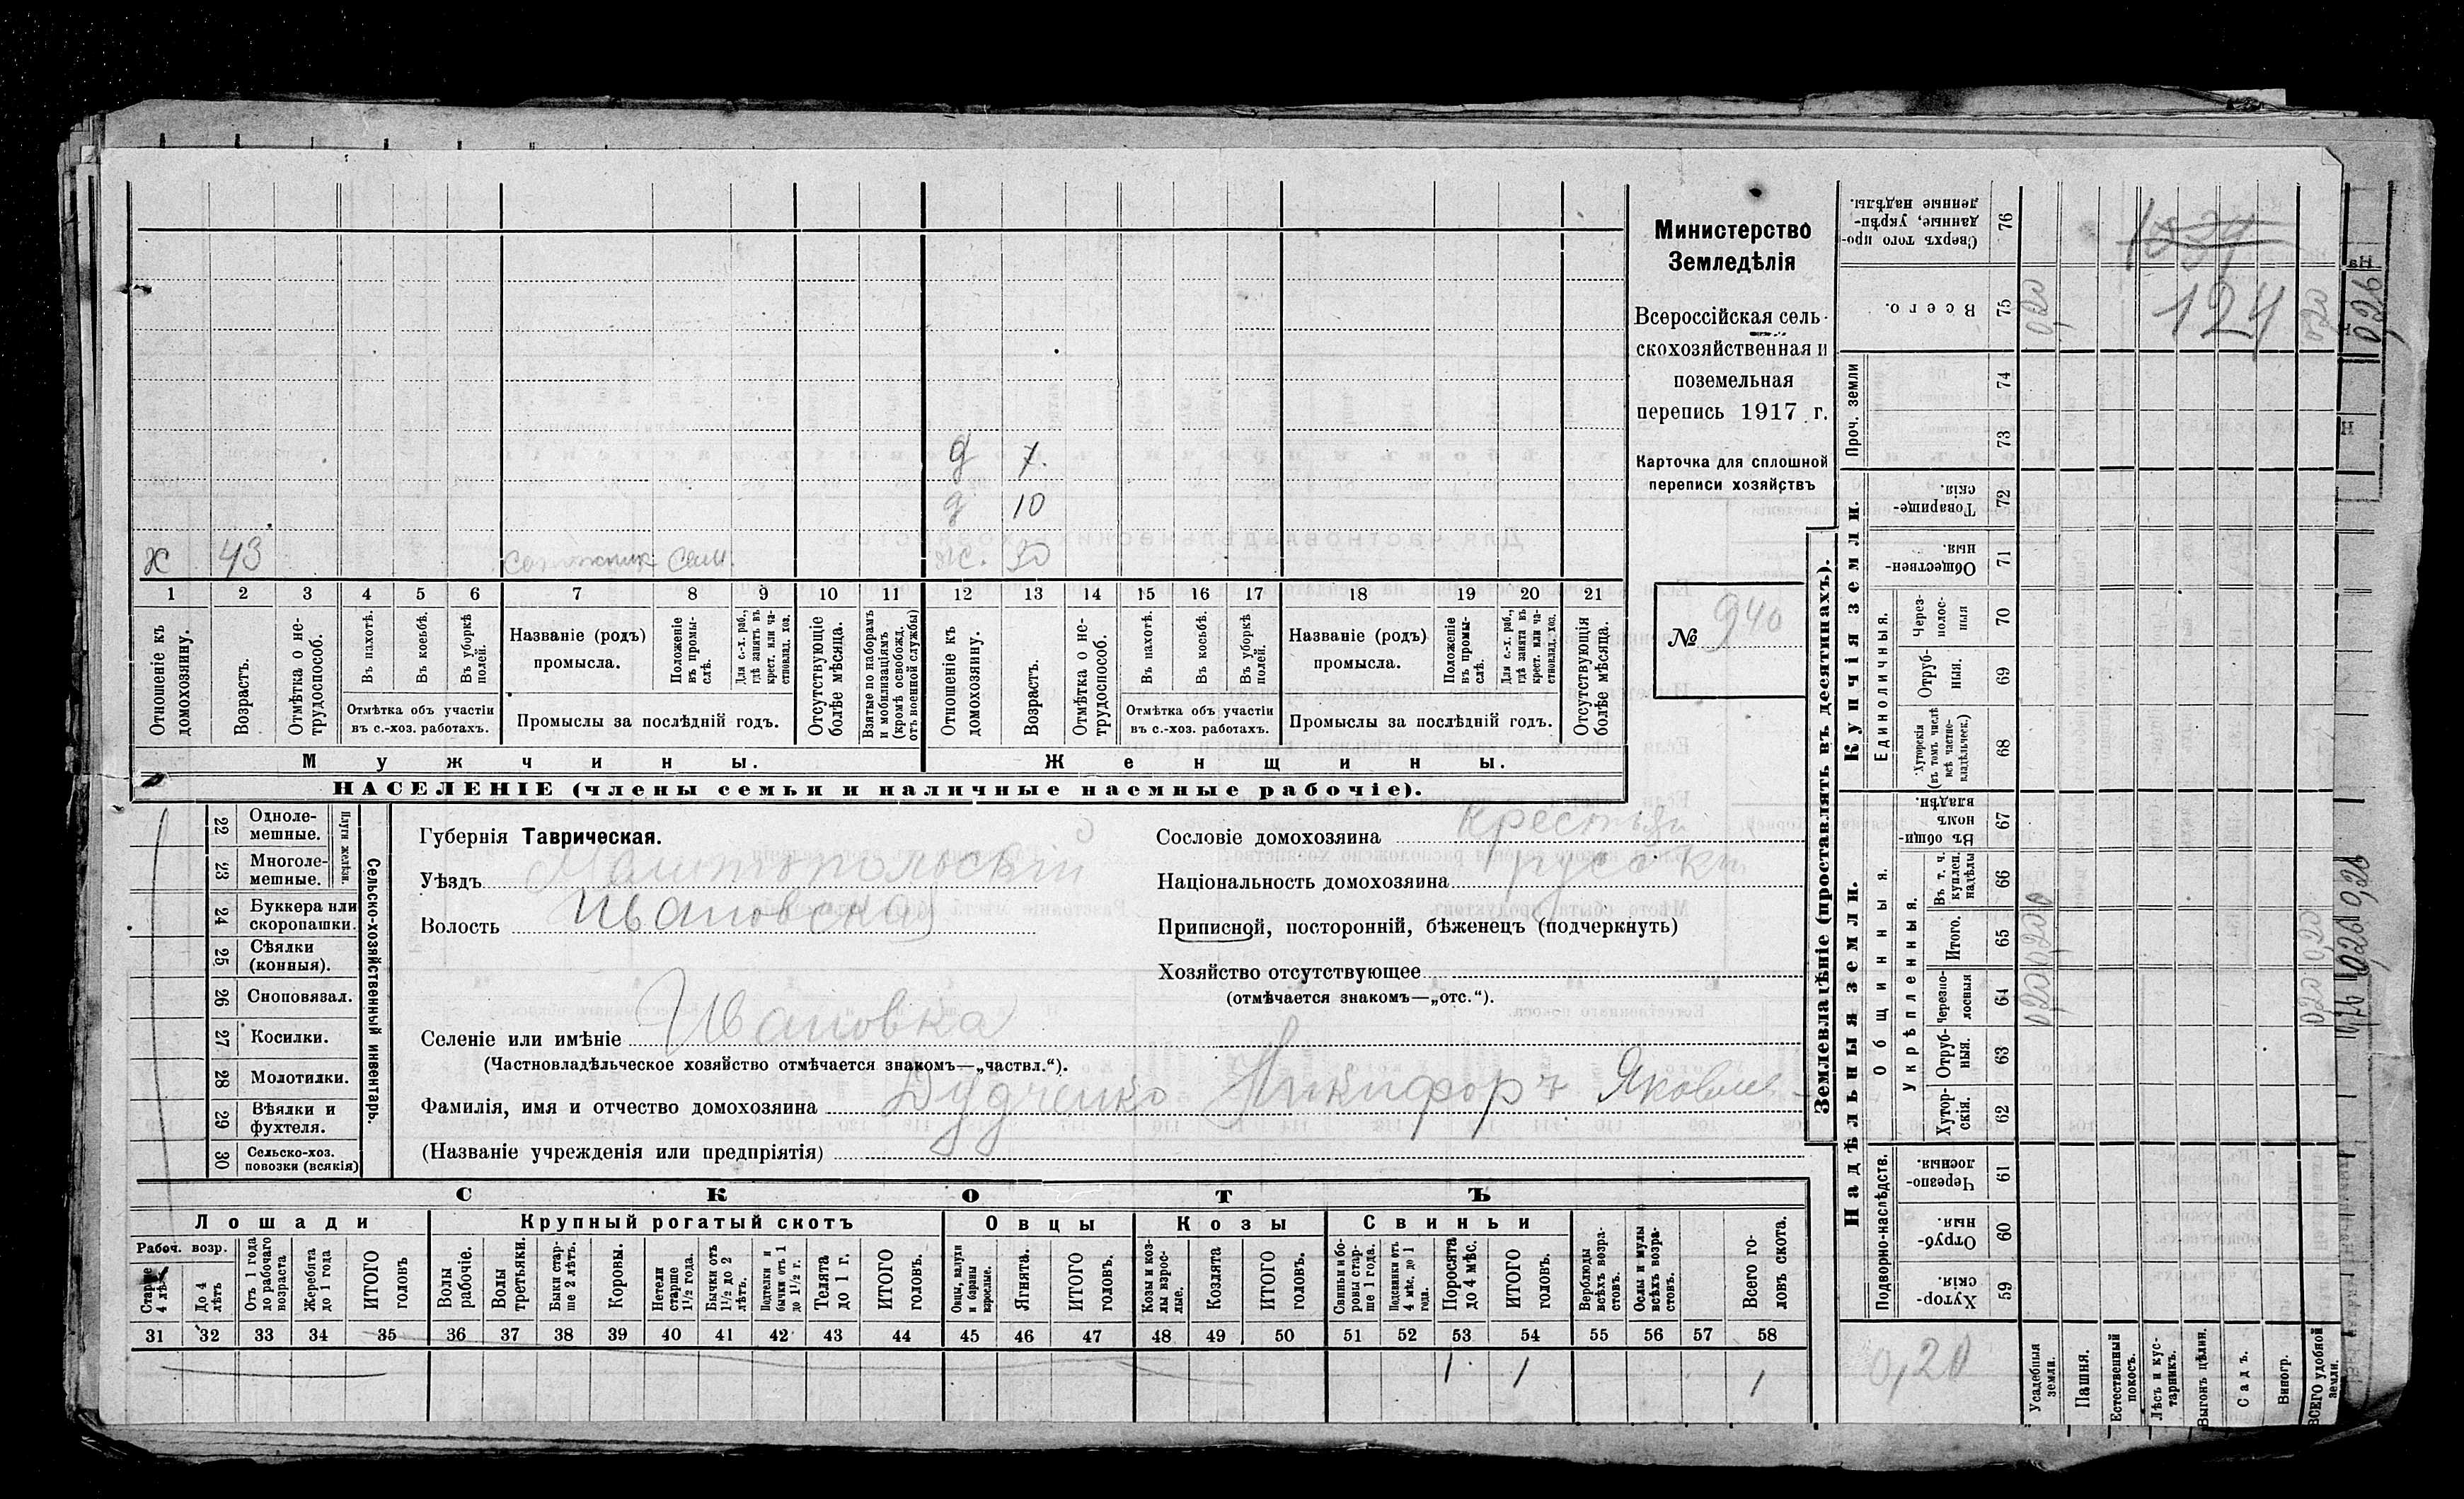 Министерство
Земледѣлія
Всероссійская сель-
скохозяйственная и
поземельная
перепись 1917 г.
Карточка для сплошной
переписи хозяйствъ
№ 940
д 7.
д 10
х 43 сапожник сам. ж. 30
1 2 3 4 5 6 7 8 9 10 11 12 13 14 15 16 17 18 19 20 21
Отношеніе къ домохозяину.
Возрастъ.
Отмѣтка о не-трудоспособ.
Въ пахотѣ.
Въ косьбѣ.
Въ уборкѣ полей.
Отмѣтка объ участіи
въ с.-хоз. работахъ.
Названіе (родъ)
промысла.
Положеніе въ промы-слѣ.
Для с.-х. раб., гдѣ занятъ въ крест. или ча-стновлад. хоз.
Промыслы за послѣдній годъ.
Отсутствующіе болѣе мѣсяца.
Взятые по наборамъ и мобилизаціямъ (кромѣ освобожд. отъ военной службы)
Отношеніе къ домохозяину.
Возрастъ.
Отмѣтка о не-трудоспособ.
Въ пахотѣ.
Въ косьбѣ.
Въ уборкѣ полей.
Отмѣтка объ участіи
въ с.-хоз. работахъ.
Названіе (родъ)
промысла.
Положеніе въ промы-слѣ.
Для с.-х. раб., гдѣ занята въ крест. или ча-стновлад. хоз.
Промыслы за послѣдній годъ.
Отсутствующія болѣе мѣсяца.
Мужчины. Женщины.
НАСЕЛЕНІЕ (члены семьи и наличные наемные рабочіе).
22 Одноле-мешные.
23 Многоле-мешные.
Плуги желѣзн.
24 Буккера или скоропашки.
25 Сѣялки (конныя).
26 Сноповязал.
27 Косилки.
28 Молотилки.
29 Вѣялки и фухтеля.
30 Сельско-хоз. повозки (всякія)
Сельско-хозяйственный инвентарь.
Губернія Таврическая.
Уѣздъ Мелитопольскій
Волость Ивановская
Сословіе домохозяина крестьян
Національность домохозяина русскій
Приписной, посторонній, бѣженецъ (подчеркнуть)
Хозяйство отсутствующее
(отмѣчается знакомъ—„отс.“).
Селеніе или имѣніе Ивановка
(Частновладѣльческое хозяйство отмѣчается знакомъ—„частвл.“).
Фамилія, имя и отчество домохозяина Дудченко Никифоръ Яковлев
(Названіе учрежденія или предпріятія)
СКОТЪ
Лошади Крупный рогатый скотъ Овцы Козы Свиньи
Рабоч. возр.
Старше 4 лѣтъ
До 4 лѣтъ
Отъ 1 года до рабочаго возраста
Жеребята до 1 года
ИТОГО головъ
Волы рабочіе.
Волы третьяки.
Быки стар-ше 2 лѣтъ.
Коровы.
Нетели старше 1 1/2 года.
Бычки отъ 1 1/2 до 2 лѣтъ.
Подтелки и бычки отъ 1 до 1 1/2 г.
Телята до 1 г.
ИТОГО головъ.
Овцы, валухи и бараны взрослые.
Ягнята.
ИТОГО головъ.
Козы и коз-лы взрос-лые.
Козлята
ИТОГО головъ.
Свиньи и бо-ровы стар-ше 1 года.
Подсвинки отъ 4 мѣс. до 1 года.
Поросята до 4 мѣс.
ИТОГО головъ.
Верблюды всѣхъ возра-стовъ.
Ослы и мулы всѣхъ возра-стовъ.
Всего го-ловъ скота.
31 32 33 34 35 36 37 38 39 40 41 42 43 44 45 46 47 48 49 50 51 52 53 54 55 56 57 58
1 1 1
Землевладѣніе (проставлять въ десятинахъ).
Сверхъ того про-данные, укрѣп-ленные надѣлы. 76
1034
Всего. 75 0,20 124 0,20
Купчія земли.
Проч. земли 74 73
Товарище-скія. 72
Обществен-ныя. 71
Единоличныя.
Через-полос-ныя 70
Отруб-ныя. 69
Хуторскія (въ томъ числѣ всѣ частно-владѣльческ.) 68
Надѣльныя земли.
Общинныя.
Въ общин-номъ владѣн. 67
Укрѣпленныя.
Въ т. ч. куплен. надѣлы 66
Итого. 65 0,20 0,20
Черезпо-лосныя 64 0,20 0,20
Отруб-ныя. 63
Хутор-скія. 62
Подворно-наслѣдств.
Черезпо-лосныя. 61
Отруб-ныя. 60
Хутор-скія. 59
0,20
Усадебныя земли.
Пашня.
Естественный покосъ.
Лѣсъ и кус-тарникъ.
Выгонъ цѣлин.
Садъ.
Виногр.
ВСЕГО удобной земли.